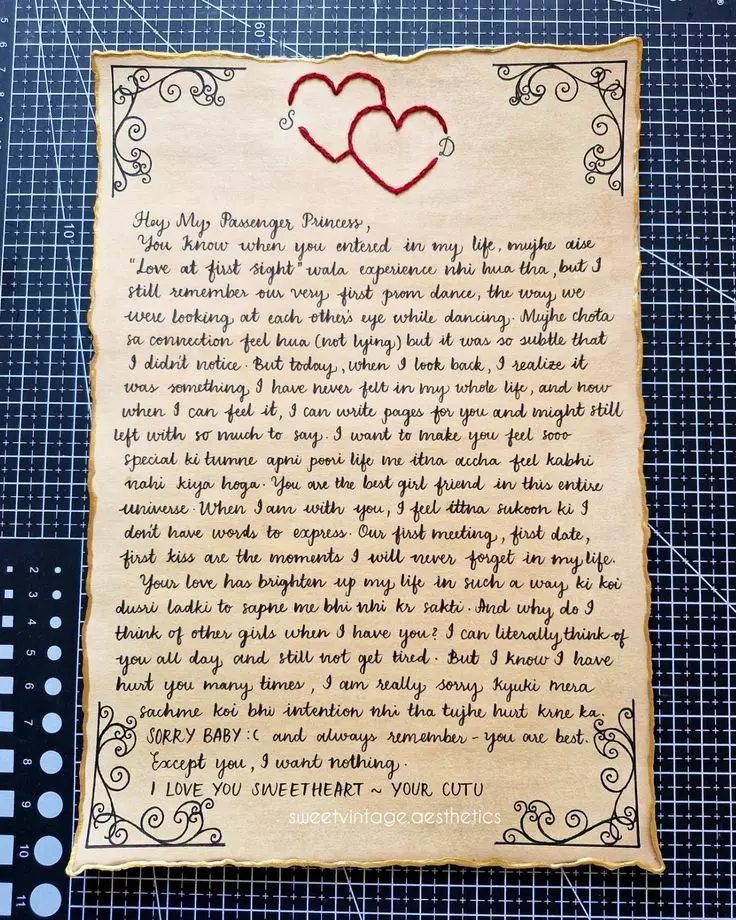 S
D
Hey My Passenger Princess,
You know when you entered in my life, mujhe aise
"Love at first sight" wala experience nhi hua tha, but I
still remember our very first prom dance, the way we
were looking at each other's eye while dancing. Mujhe chota
sa connection feel hua (not lying) but it was so subtle that
I didn't notice. But today, when I look back, I realize it
was something I have never felt in my whole life, and now
when I can feel it, I can write pages for you and might still
left with so much to say. I want to make you feel sooo
special ki tumne apni poori life me itna accha feel kabhi
nahi kiya hoga. You are the best girl friend in this entire
universe. When I am with you, I feel ittna sukoon ki I
don't have words to express. Our first meeting, first date,
first kiss are the moments I will never forget in my life.
Your love has brighten up my life in such a way ki koi
dusri ladki to sapne me bhi nhi kr sakti. And why do I
think of other girls when I have you? I can literally think of
you all day and still not get tired. But I know I have
hurt you many times, I am really sorry kyuki mera
sachme koi bhi intention nhi tha tujhe hurt krne ka.
SORRY BABY :( and always remember - you are best.
Except you, I want nothing.
I LOVE YOU SWEETHEART ~ YOUR CUTU
sweetvintage.aesthetics
60°
10°
5
6
7
8
2
3
4
5
6
7
8
9
10
11